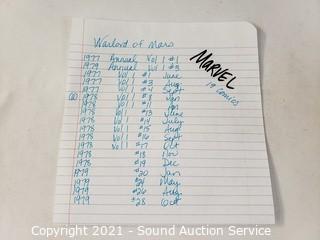 Warlord of Mars
MARVEL
19 comics
1977 Annual Vol 1 #1
1979 Annual Vol 1 #3
1977 Vol 1 #1 June
1977 Vol 1 #3 Aug
1977 Vol 1 #4 Sept
1978 Jan
1978 Vol 1 #11
1978 Vol 1 #13 June
1978 Vol 1 #14 July
1978 Vol 1 #15 Aug
1978 Vol 1 #16 Sept
1978 Vol 1 #17 Oct
1978 #18 Nov
1978 #19 Dec
1979 #20 Jan
1979 #24 May
1979 #26 Aug
1979 #28 Oct
Copyright 2021 - Sound Auction Service